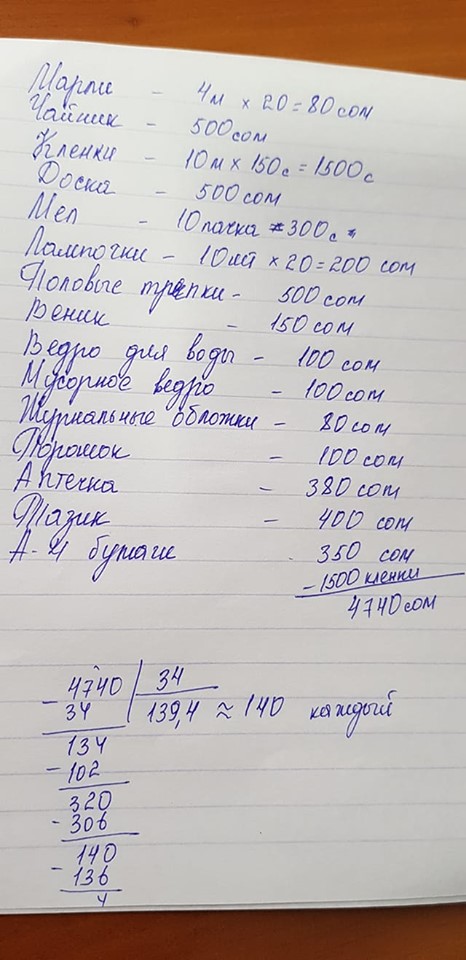 Марли - 4м × 20 = 80 сом
Чайник - 500 сом
Кленки - 10м × 150с = 1500с
Доска - 500 сом
Мел - 10 пачка × 300с
Лампочки - 10шт × 20 = 200 сом
Половые трепки - 500 сом
Веник - 150 сом
Ведро для воды - 100 сом
Мусорное ведро - 100 сом
Журнальные обложки - 80 сом
Порошок - 100 сом
Аптечка - 380 сом
Тазик - 400 сом
А-4 бумаги 350 сом
- 1500 кленки
4740 сом
- 4740 | 34
34 139,4 ≈ 140 каждый
134
- 102
320
- 306
140
- 136
4